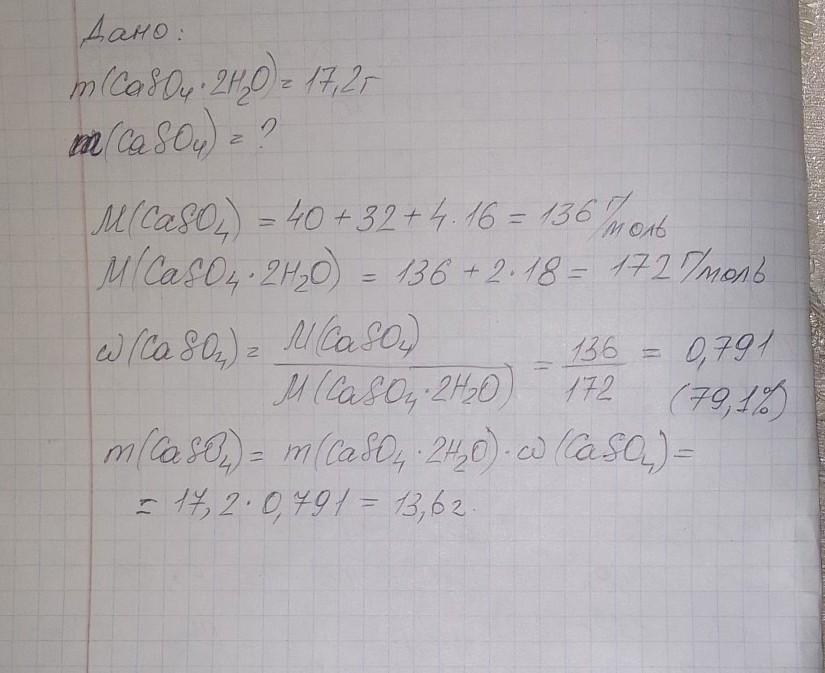 Дано:
m(CaSO₄·2H₂O)=17,2г
m(CaSO₄)=?
M(CaSO₄)=40+32+4·16=136 г/моль
M(CaSO₄·2H₂O)=136+2·18=172 г/моль
ω(CaSO₄)= M(CaSO₄)/M(CaSO₄·2H₂O) = 136/172 = 0,791
(79,1%)
m(CaSO₄)= m(CaSO₄·2H₂O)·ω(CaSO₄)=
= 17,2·0,791=13,6г.